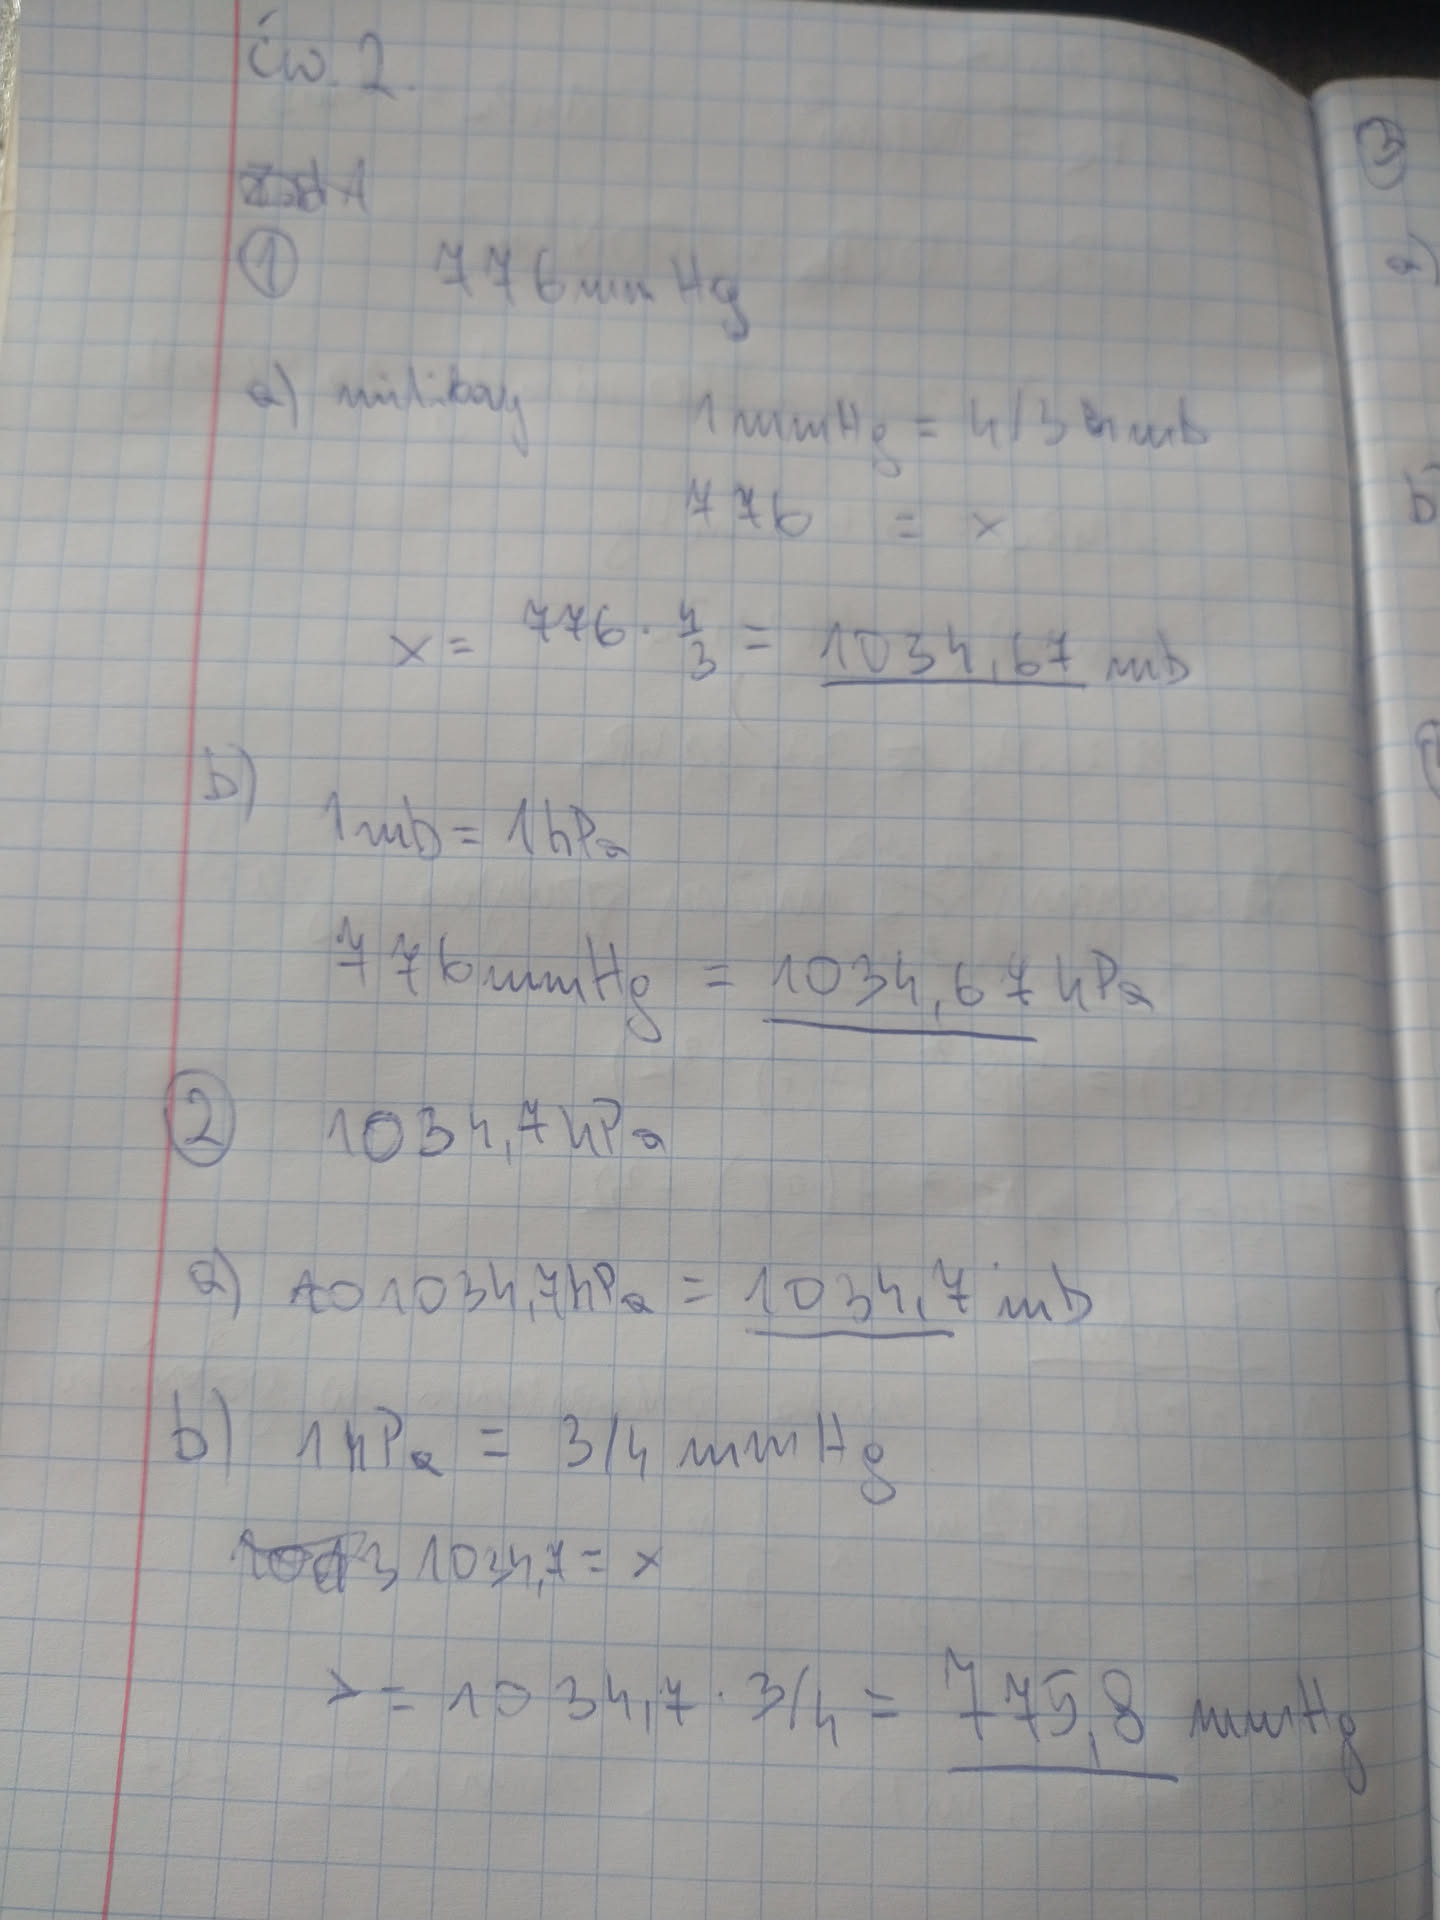 Ćw. 2.
1
776 mmHg
a) milibary 1 mmHg = 4/3 mb
776 = x
x = 776 · 4/3 = 1034,67 mb
b)
1 mb = 1 hPa
776 mmHg = 1034,67 hPa
2 1034,7 hPa
a) 1034,7 hPa = 1034,7 mb
b) 1 hPa = 3/4 mmHg
1034,7 = x
x = 1034,7 · 3/4 = 775,8 mmHg
3
a)
b